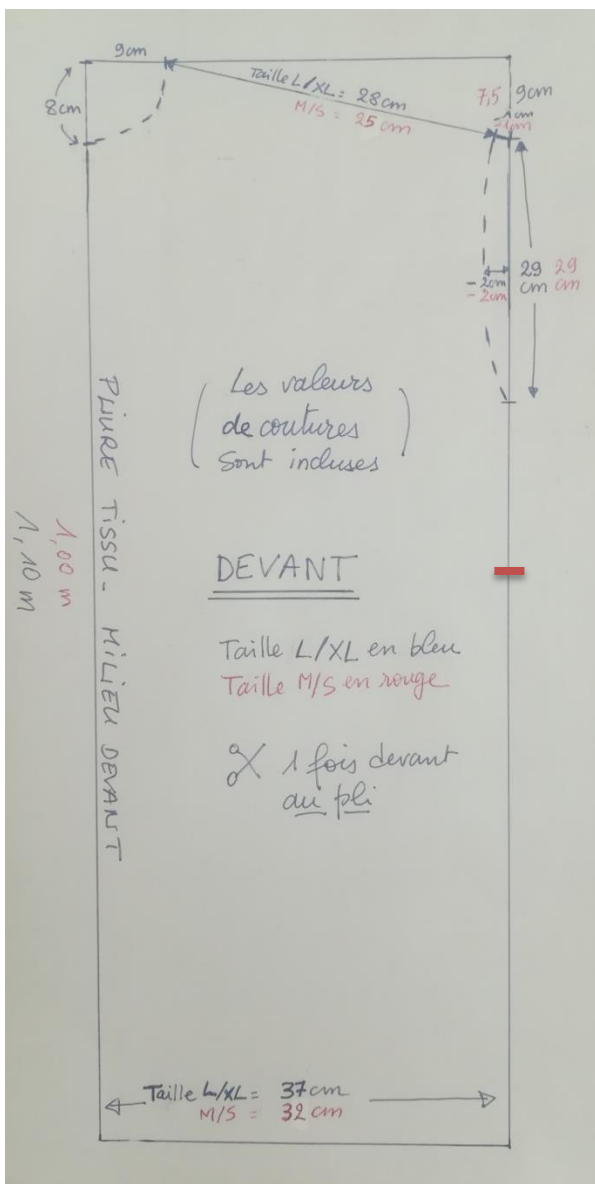 9cm
8cm
Taille L/XL = 28cm
M/S = 25 cm
7,5 9cm
-1cm
-1cm
-2cm
-2cm
29 29
cm cm
(Les valeurs
de coutures
Sont incluses)
PLIURE TISSU - MILIEU DEVANT
1,00 m
1,10 m
DEVANT
Taille L/XL en bleu
Taille M/S en rouge
1 fois devant
au pli
Taille L/XL = 37cm
M/S = 32 cm